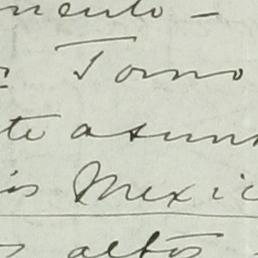 mento -
Tomo
te asun
is Mexic
altos